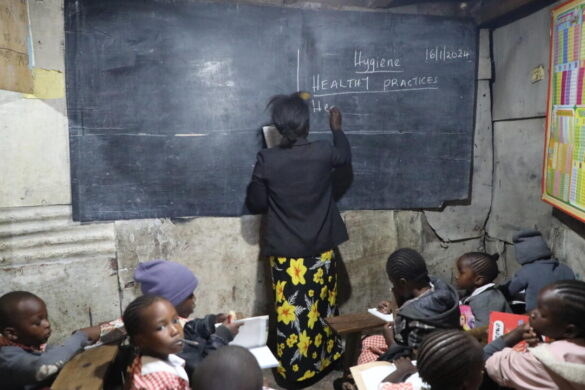 Hygiene 16/1/2024
HEALTHY PRACTICES
He